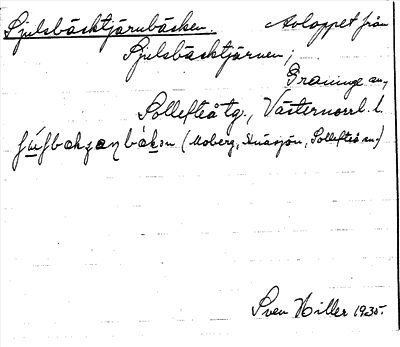 Sjulsbäcktjärnbäcken. Avloppet från
Sjulsbäcktjärnen;
Graninge sn,
Sollefteå tg., Västernorrl. l.
(Moberg, Knäsjön, Sollefteå sn)
Sven Hiller 1935.